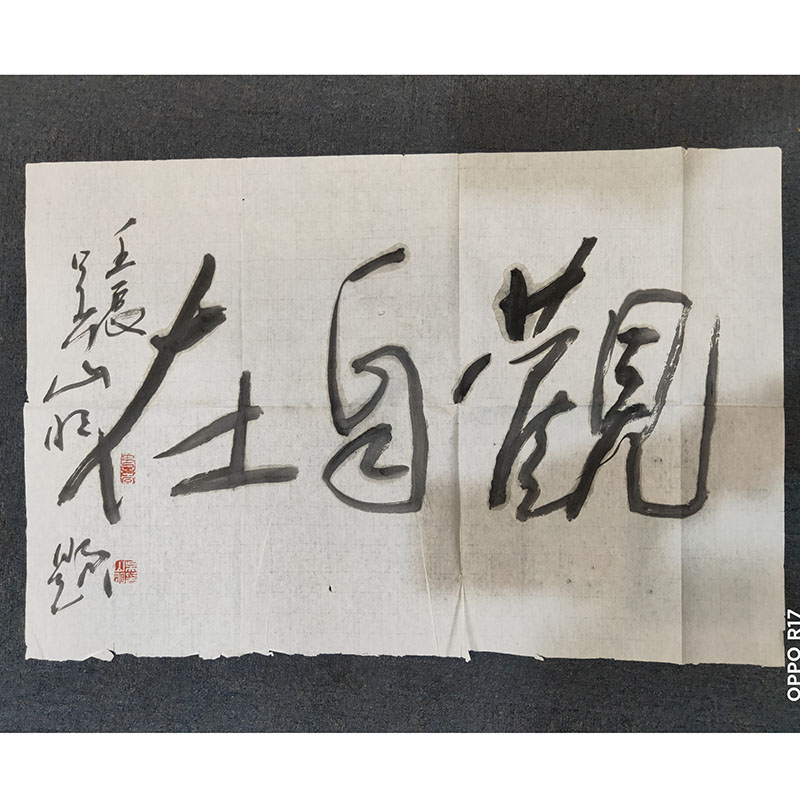 觀自在
壬辰
吴山明題
OPPO R17